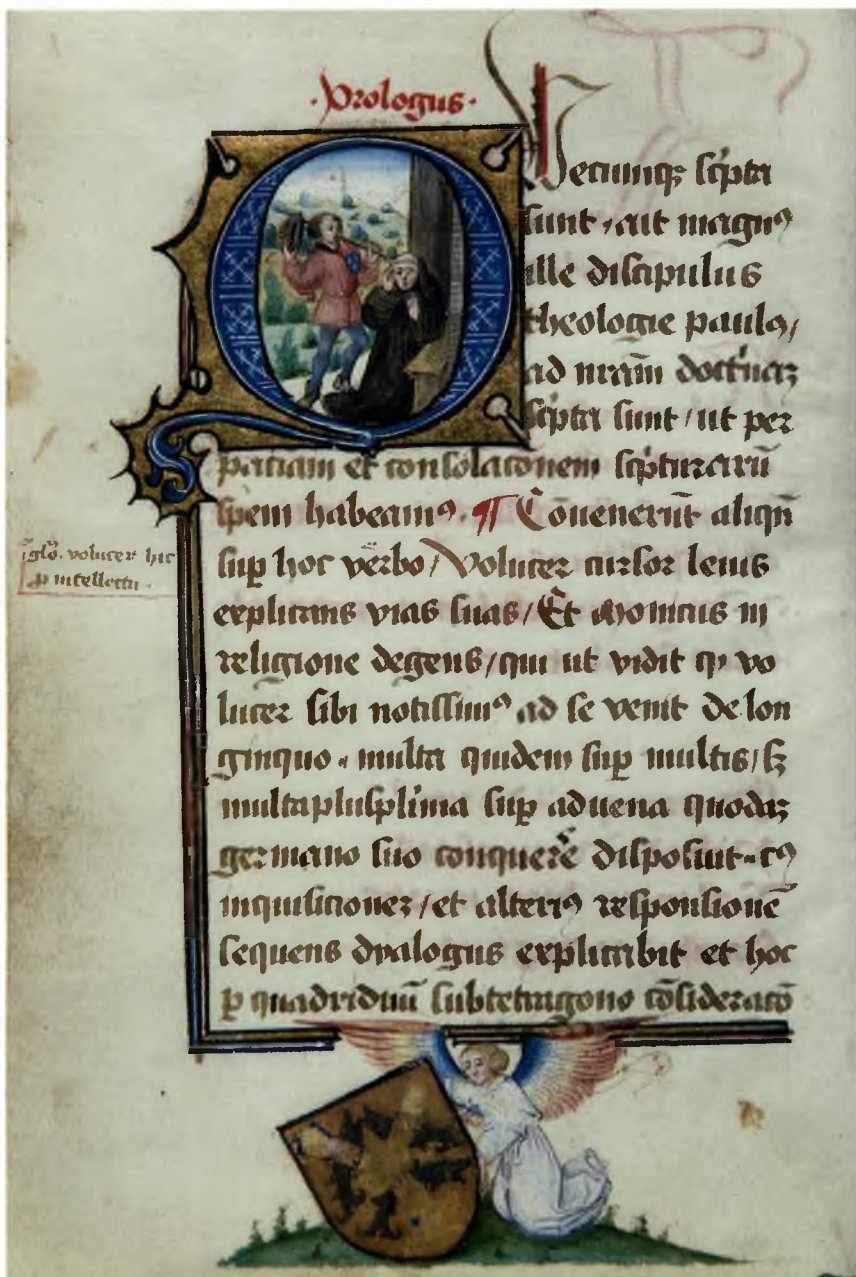 ·Prologus·
Q Vecunq; sc̄pta
sunt / ait magnꝰ
ille discipulus
theologie paulꝰ /
ad nr̄am doctrinaꝫ
sc̄pta sunt / ut per
patiam et consolac̄onem sc̄pturarū
spem habeamꝰ. ¶ Cōuenerūt aliqn̄
suꝑ hoc verbo / Volucer cursor leuis
explicans vias suas / Et Monicus in
religione degens / qui ut vidit ꝙ vo
lucer sibi notissimꝰ ad se venit de lon
ginquo · multa quidem suꝑ multis / sꝫ
multaplusplima suꝑ aduena quodaꝫ
germano suo conquerē disposuit · cꝰ
inquisicioneꝫ / et alteriꝰ responsionē
sequens dyalogus explicabit et hoc
ꝑ quadriduū subtetragono cōsideratō
glō. volucer hic
ꝓ intellectu.